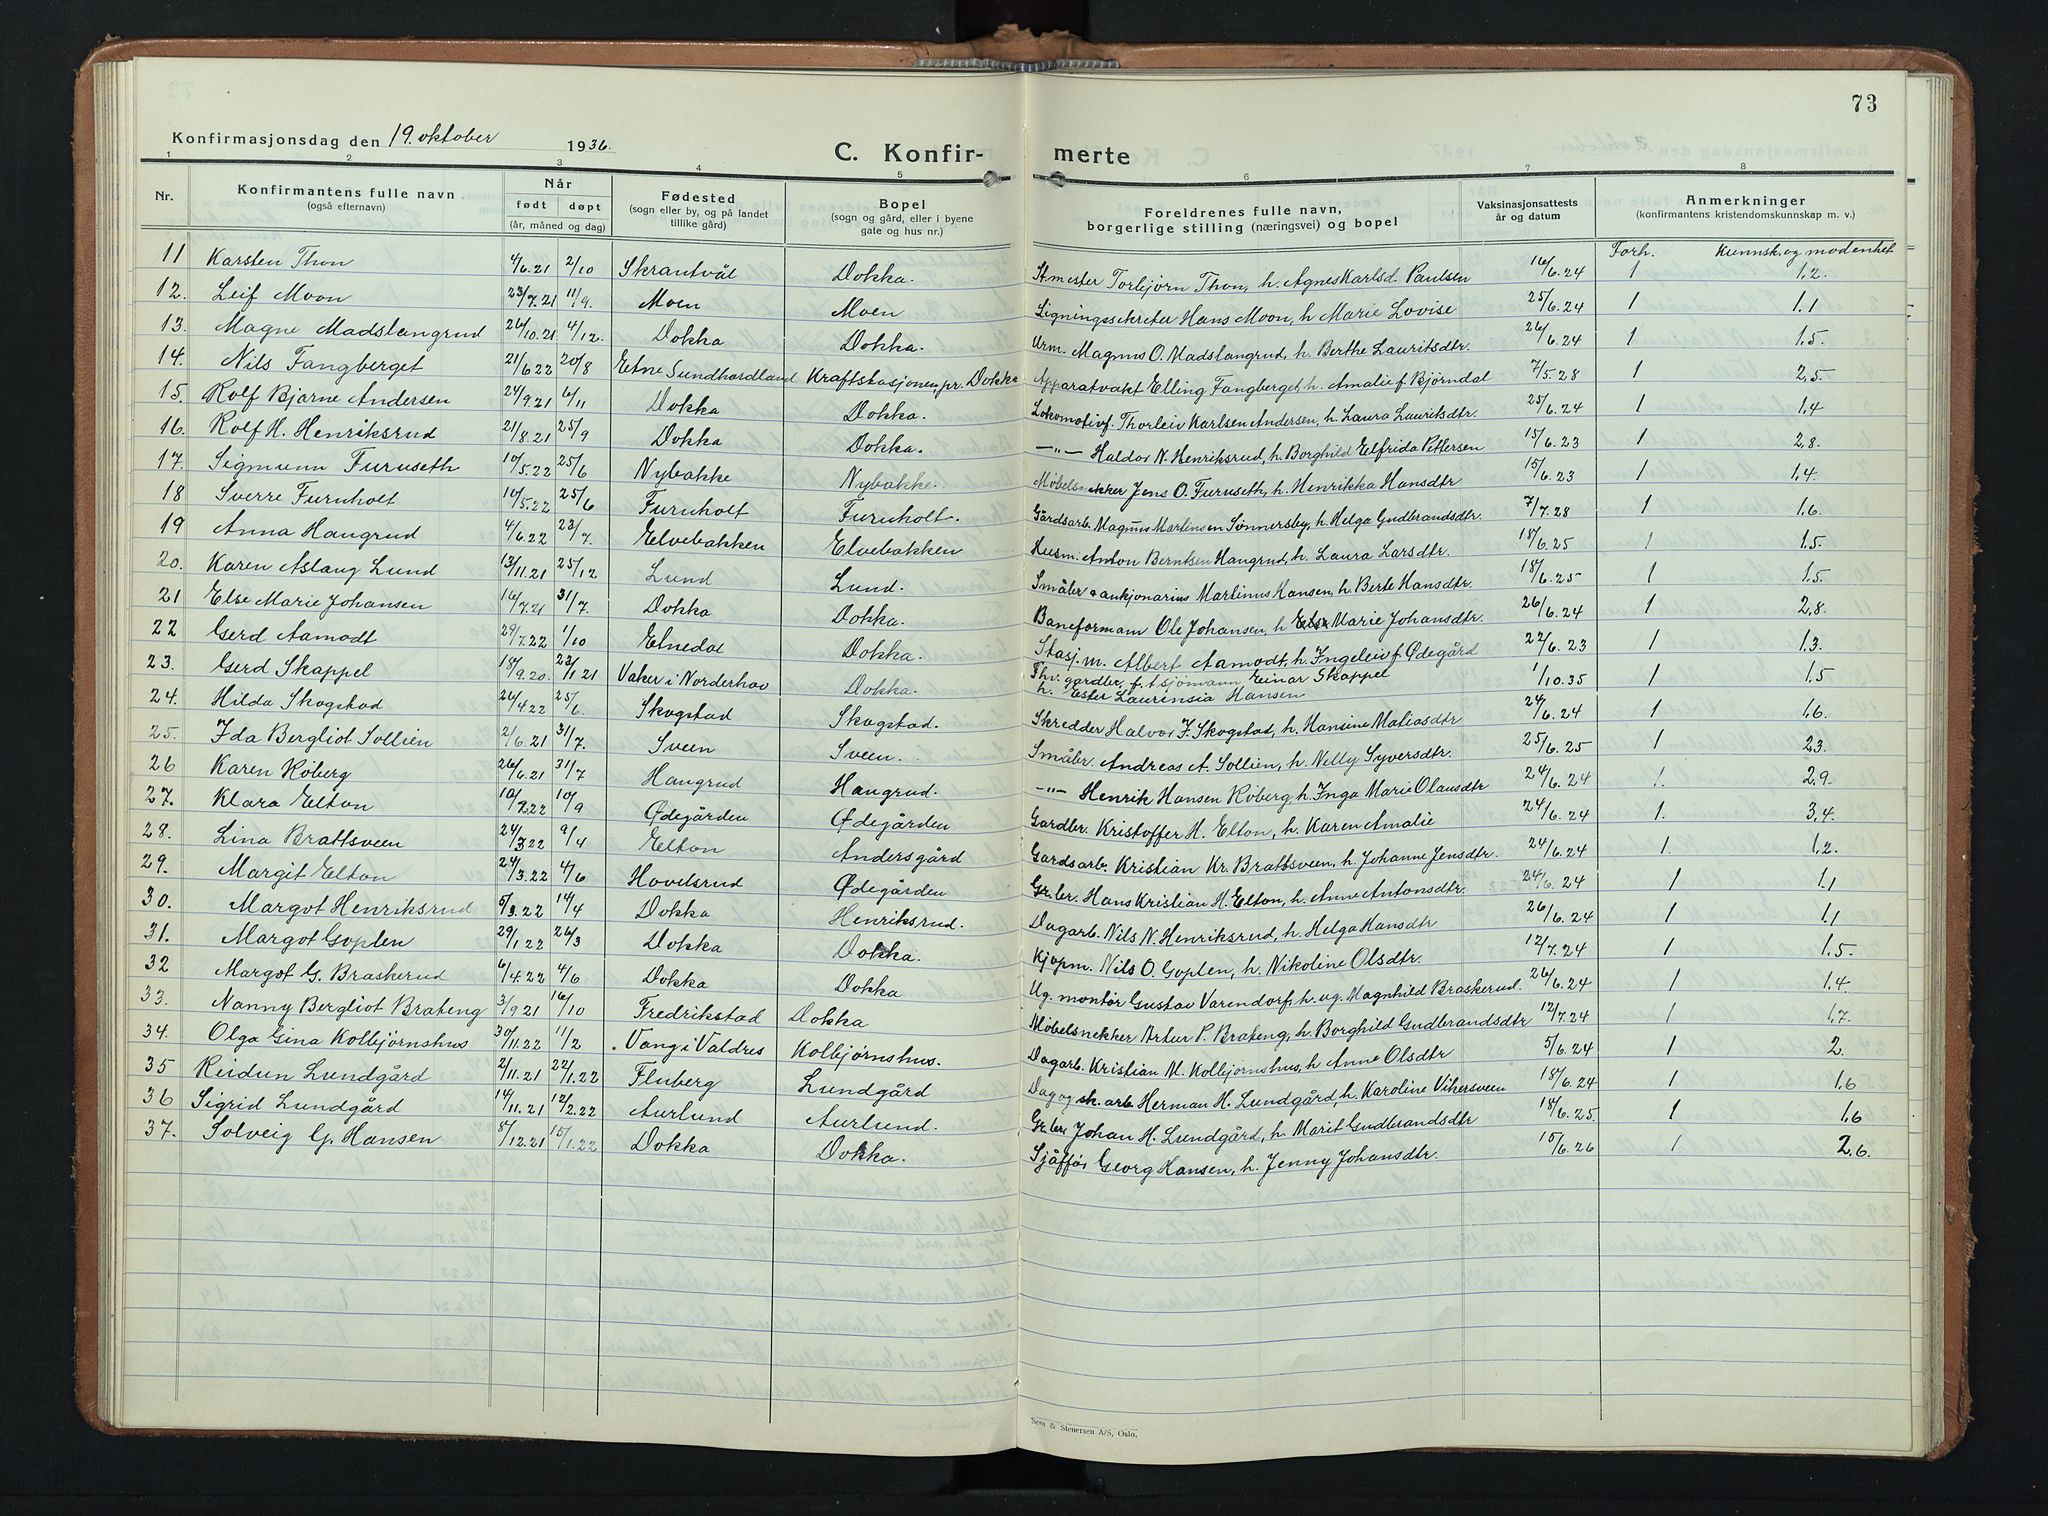 73
Konfirmasjonsdag den 19. oktober 1936.
C. Konfir- merte
1 2 3 4 5 6 7 8
Nr. | Konfirmantens fulle navn (også efternavn) | Når født døpt (år, måned og dag) | Fødested (sogn eller by, og på landet tillike gård) | Bopel (sogn og gård, eller i byene gate og hus nr.) | Foreldrenes fulle navn, borgerlige stilling (næringsvei) og bopel | Vaksinasjonsattests år og datum | Anmerkninger (konfirmantens kristendomskunnskap m. v.)
Forh. Kunnsk. og modenhet
11 Karsten Thon 4/6.21 2/10 Skrantvål Dokka. St.mester Torbjørn Thon, h. Agnes Karlsd. Paulsen 16/6.24 1 1,2.
12. Leif Moon 23/7.21 11/9. Moen Moen Ligningssekretær Hans Moon, h. Marie Lovise 25/6.24 1 1.1
13. Magne Madslangrud 26/10.21 4/12. Dokka Dokka. Urm. Magnus O. Madslangrud, h. Berthe Lauritsdtr. 26/6.24 1 1.5.
14. Nils Fangberget 21/6.22 20/8 Etne Sundhordland Kraftstasjonen, pr. Dokka Apparatvakt Elling Fangberget, h. Amalie f. Bjørndal 7/5.28 1 2,5.
15. Rolf Bjarne Andersen 24/9.21 6/11 Dokka Dokka. Lokomotivf. Thorleiv Karlsen Andersen, h. Laura Lauritsdtr. 25/6.24 1 1.4
16. Rolf H. Henriksrud 21/8.21 25/9 Dokka Dokka. —"— Haldor N. Henriksrud, h. Borghild Elfrida Pettersen 15/6.23 1 2,8.
17. Sigmunn Furuseth 10/5.22 25/6 Nybakke Nybakke. Møbelsnekker Jens O. Furuseth, h. Henrikka Hansdtr 15/6.23 1 1.4.
18 Sverre Furuholt 10/5.22 25/6 Furuholt Furuholt. Gårdsarb. Magnus Martinsen Sønnersby, h. Helga Gudbrandsdtr. 7/7.28 1 1.6.
19 Anna Haugrud 4/6.22 23/7. Elvebakken Elvebakken Husm. Anton Berntsen Haugrud, h. Laura Larsdtr. 18/6.25 1 1.5.
20. Karen Aslaug Lund 13/11.21 25/12 Lund Lund. Småbr. Martinus Hansen, h. Berte Hansdtr. 18/6.25 1 1.5.
21 Else Marie Johansen 16/7.21 31/7. Dokka Dokka. Baneformann Ole Johansen, h. Else Marie Johansdtr. 26/6.24 1 2,8.
22 Gerd Aamodt 29/7.22 1/10 Etnedal Dokka. Stasj.m. Albert Aamodt, h. Ingeleiv f. Ødegård 22/6.23 1 1.3.
23. Gerd Skappel 18/9.20. 23/1.21 Vaker i Norderhov Dokka. Fhv. gardbr. f. t sjømann Einar Skappel
h. Ester Laurensia Hansen 1/10.35 1 1.5
24. Hilda Skogstad 26/4.22 25/6. Skogstad Skogstad. Skredder Halvor J. Skogstad, h. Hansine Matiasdtr 24/6.24 1 1.6.
25. Ida Bergliot Sollien 2/6.21 31/7. Sveen Sveen. Småbr. Andreas A. Sollien, h. Nelly Syversdtr. 25/6.25 1 2.3.
26 Karen Røberg 26/6.21 31/7 Haugrud Haugrud. —"— Henrik Hansen Røberg, h. Inga Marie Olausdtr 24/6.24 1. 2.9.
27. Klara Elton 10/7.22 10/9 Ødegården Ødegården Gardbr. Kristoffer H. Elton, h. Karen Amalie 24/6.24 1. 3,4.
28. Lina Brattsveen 24/3.22 9/4 Elton Andersgård Gardsarb. Kristian Kr. Brattsveen, h. Johanne Jensdtr. 24/6.24 1. 1.2.
29. Margit Elton 24/3.22 4/6 Hovelsrud Ødegården Gr.br. Hans Kristian H. Elton, h. Anne Antonsdtr. 24/6.24 1 1.1
30. Margot Henriksrud 5/3.22 14/4 Dokka Henriksrud. Dagarb. Nils N. Henriksrud, h. Helga Hansdtr 26/6.24 1 1.1
31. Margot Goplen 29/1.22 26/3 Dokka Dokka. Kjøpm. Nils O. Goplen, h. Nikoline Olsdtr. 12/7.24 1 1.5.
32 Margot G. Braskerud 6/4.22 4/6 Dokka Dokka Ug. montør Gustav Varendorf, h. ug. Magnhild Braskerud. 26/6.24 1 1.4.
33. Nanny Bergliot Brateng 3/9.21 16/10 Fredrikstad Dokka Møbelsnekker Artur P. Brateng, h. Borghild Gudbrandsdtr 12/7.24 1 1.7.
34. Olga Gina Kolbjørnshus 30/11.22 11/2 Vang i Valdres Kolbjørnshus. Dagarb. Kristian M. Kolbjørnshus, h. Anne Olsdtr 5/6.24 1 2.
35 Reidun Lundgård 2/11.21 22/1.22 Fluberg Lundgård Dag og sk. arb. Herman H. Lundgård, h. Karoline Vikersveen 18/6.24 1 1.6
36 Sigrid Lundgård 14/11.21 12/2.22 Aurlund Aurlund. Gr.br. Johan H. Lundgård, h. Marit Gudbrandsdtr 18/6.25. 1 1.6
37. Solveig G. Hansen 8/12.21 15/1.22 Dokka Dokka. Sjåffør Georg Hansen, h. Jenny Johansdtr. 15/6.26 1 2.6.
Sem & Stenersen A/S, Oslo.